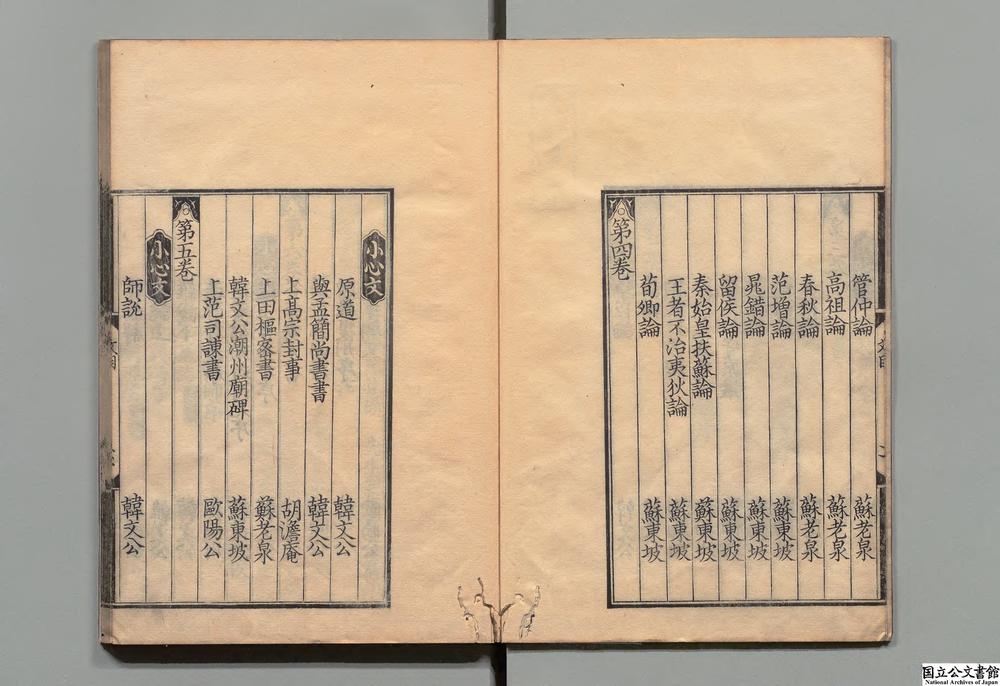 管仲論 蘇老泉
高祖論 蘇老泉
春秋論 蘇老泉
范增論 蘇東坡
晁錯論 蘇東坡
留侯論 蘇東坡
秦始皇扶蘇論 蘇東坡
王者不治夷狄論 蘇東坡
荀卿論 蘇東坡
第四卷
小心文
原道 韓文公
與孟簡尚書書 韓文公
上高宗封事 胡澹庵
上田樞密書 蘇老泉
韓文公潮州廟碑 蘇東坡
上范司諌書 歐陽公
第五卷
小心文
師說 韓文公
国立公文書館
National Archives of Japan